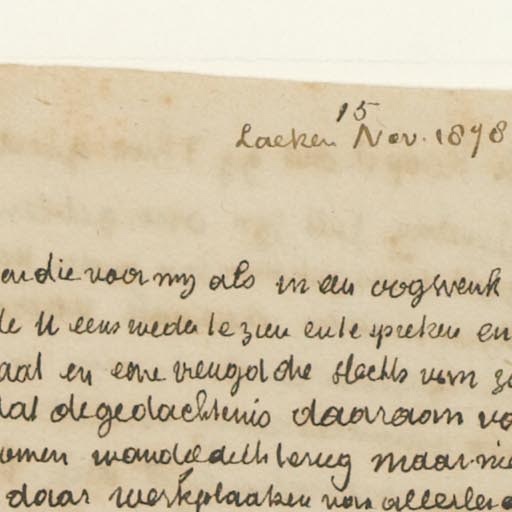 15
Laeken Nov. 1878
die voor my als in een oogwenk
de U eens weder te zien en te spreken en
aal en eene vreugd die slechts
dat de gedachtenis daaraan
omen wandelde ik terug maar
daar werkplaatsen van allerlei